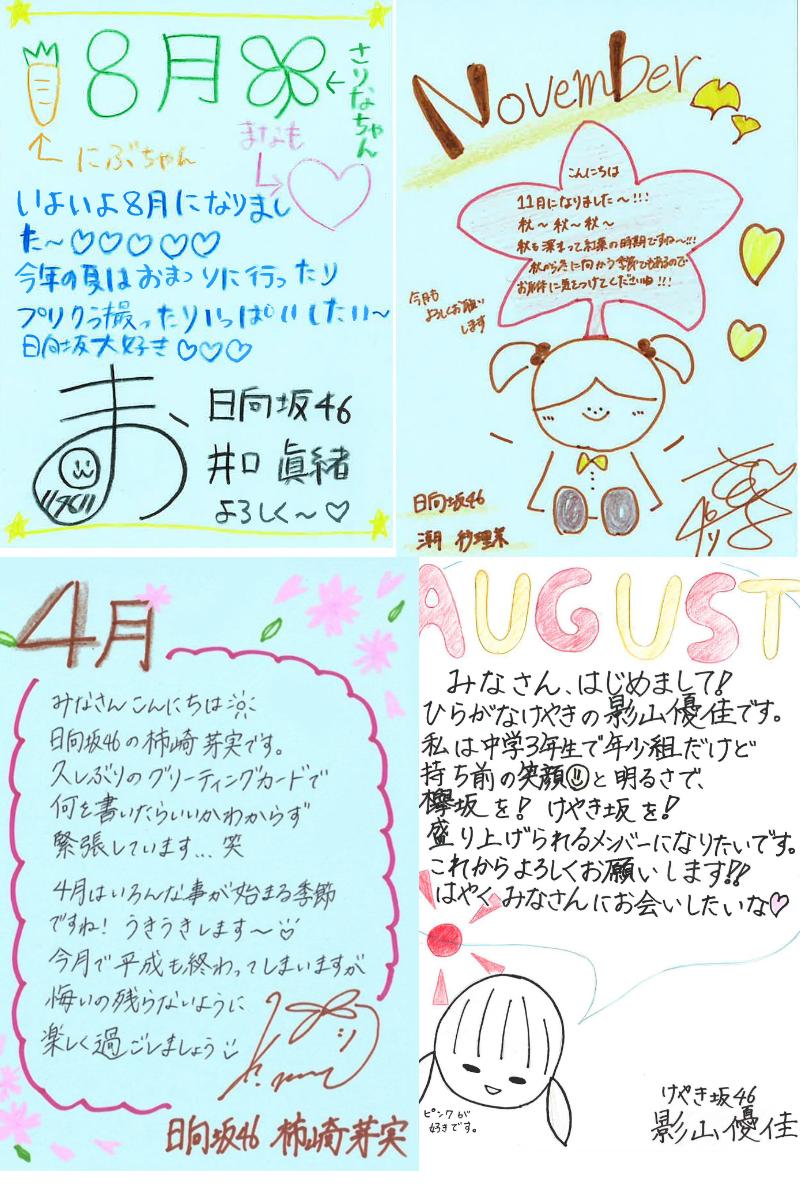 8月
さりなちゃん
まなも
にぶちゃん
いよいよ8月になりまし
た~♡♡♡♡♡
今年の夏はおまつりに行ったり
プリクラ撮ったりいっぱいしたい~
日向坂大好き♡♡♡
日向坂46
井口 眞緒
よろしく~♡
November
こんにちは
11月になりました~!!!
秋~秋~秋~
秋も深まって紅葉の時期ですね~!!!
秋から冬に向かう季節でもあるので
お身体に気をつけてくださいね!!!
今月も
よろしくお願い
します
日向坂46
潮 紗理菜
4月
みなさんこんにちは
日向坂46の柿崎芽実です。
久しぶりのグリーティングカードで
何を書いたらいいかわからず
緊張しています...笑
4月はいろんな事が始まる季節
ですね! うきうきします~
今月で平成も終わってしまいますが
悔いの残らないように
楽しく過ごしましょう
日向坂46 柿崎芽実
AUGUST
みなさん、はじめまして!
ひらがなけやきの影山優佳です。
私は中学3年生で年少組だけど
持ち前の笑顔と明るさで、
欅坂を! けやき坂を!
盛り上げられるメンバーになりたいです。
これからよろしくお願いします!!
はやくみなさんにお会いしたいな♡
ピンクが
好きです。
けやき坂46
影山優佳